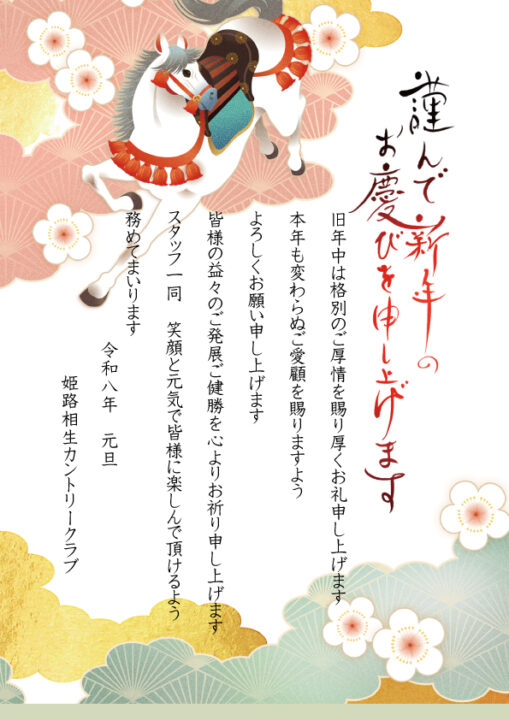 謹んで新年の
お慶びを申し上げます
旧年中は格別のご厚情を賜り厚くお礼申し上げます
本年も変わらぬご愛顧を賜りますよう
よろしくお願い申し上げます
皆様の益々のご発展ご健勝を心よりお祈り申し上げます
スタッフ一同　笑顔と元気で皆様に楽しんで頂けるよう
務めてまいります
令和八年　元旦
姫路相生カントリークラブ